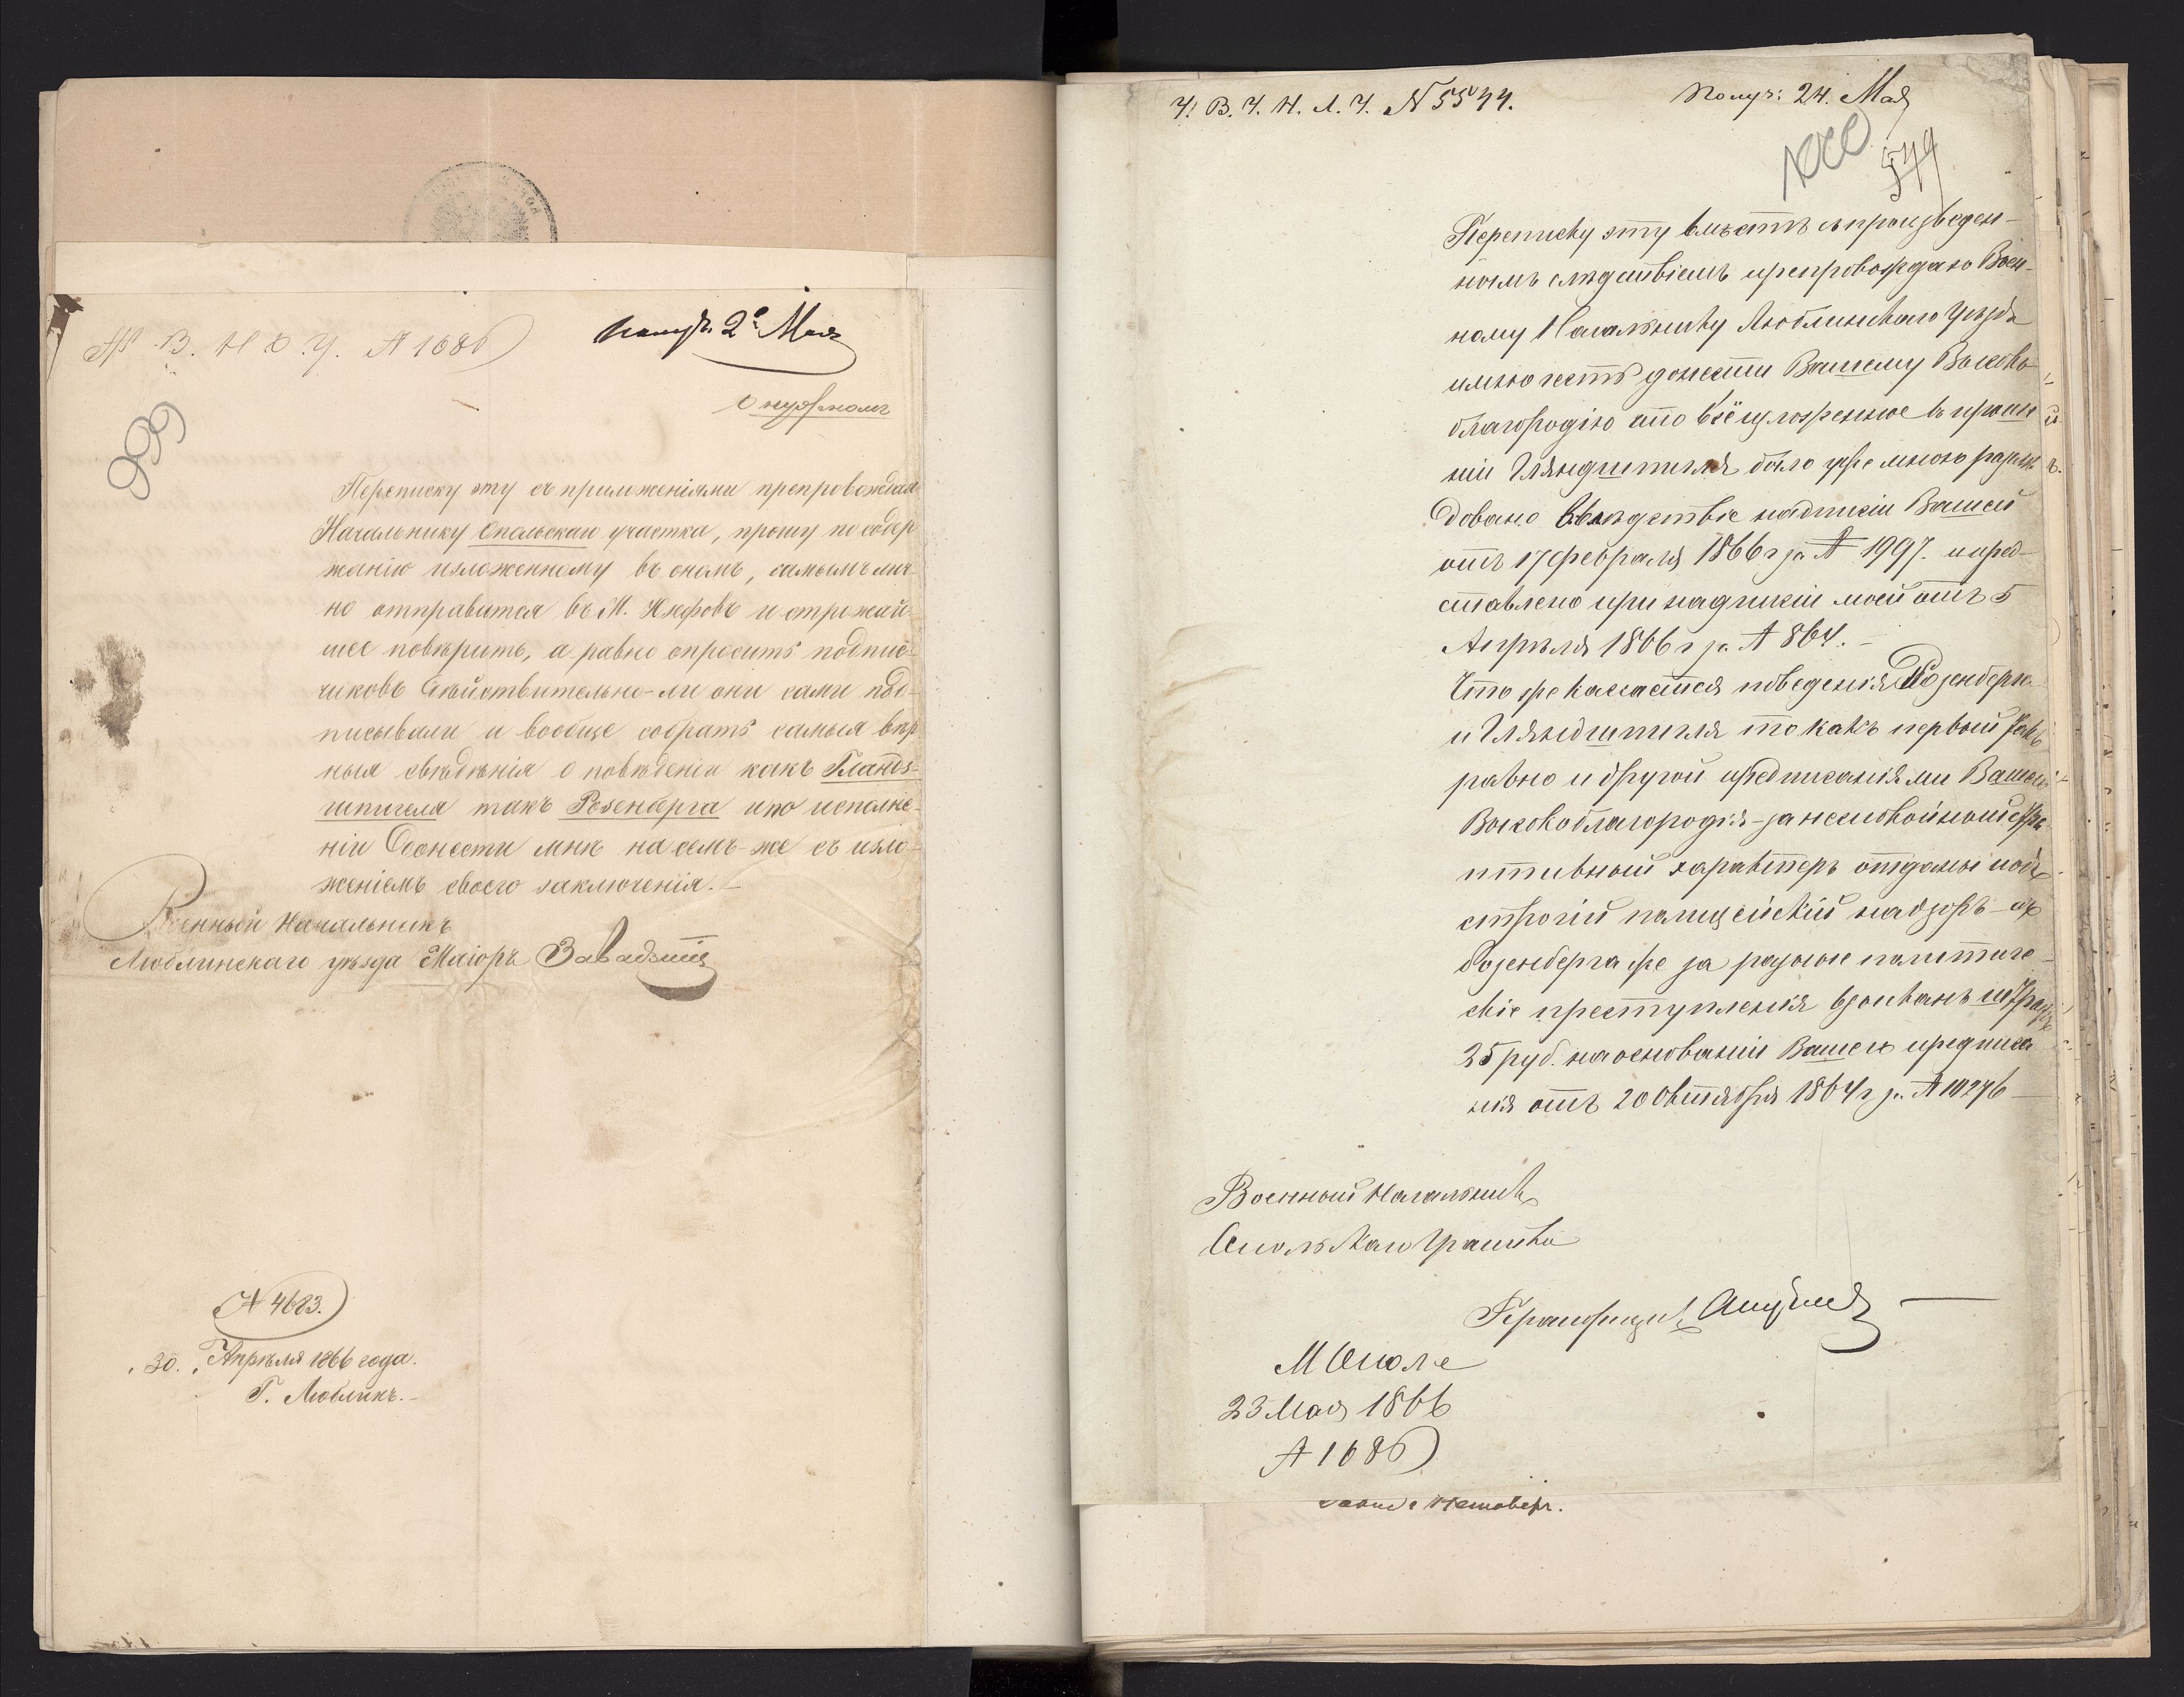 В. Н. О. У. № 1686
Получ. 2го Мая
О нужномъ
999
Переписку эту съ приложеніями препровождая
Начальнику Опольскаго участка, прошу по содер
жанію изложенному въ ономъ, самымъ лич-
но отправится въ М. Юзефовъ и строжай-
шее повѣрить, а равно опросить подпис-
чиковъ дѣйствительно-ли они сами под-
писывали и вообще собрать самыя вѣр
ныя свѣдѣнія о поведеніи какъ Гландз-
шпигеля такъ Розенберга и по исполне-
ніи донести мнѣ на семъ-же съ изло-
женіемъ своего заключенія.-
Военный Начальникъ
Люблинскаго уѣзда Маіоръ
№ 4683.
30. Апрѣля 1866 года.
Г. Люблинъ.-
У. В. У. Н. Л. У. № 5544.
Получ: 24. Мая
1000
549
Переписку эту вмѣстѣ съ произведен-
нымъ слѣдствіемъ препровождаю Воен-
ному Начальнику Люблинскаго Уѣзда
имѣю честь донести Вашему Высоко-
благородію что всё изложенное въ проше
ніи Гляндшпигля было уже мною разслѣ
довано вслѣдствіе надписи Вашей
отъ 17 февраля 1866 г за № 1997. и пред-
ставлено при надписи моей отъ 5
Апрѣля 1866 г за № 864.-
Что же касается поведенія Розенберга
и Гляндшпигля то какъ первый такъ
равно и другой предписаніями Вашего
Высокоблагородія - за неспокойный
характеръ отданы подъ
строгій полицейскій надзоръ - съ
Розенберга же за разные политиче-
скіе преступленія взысканъ штрафъ
25 руб. на основаніи Вашего предписа
нія отъ 20 Октября 1864 г за № 10276 -
Военный Начальникъ
Опольскаго Участка
М Ополе
23 Мая 1866
№ 1686